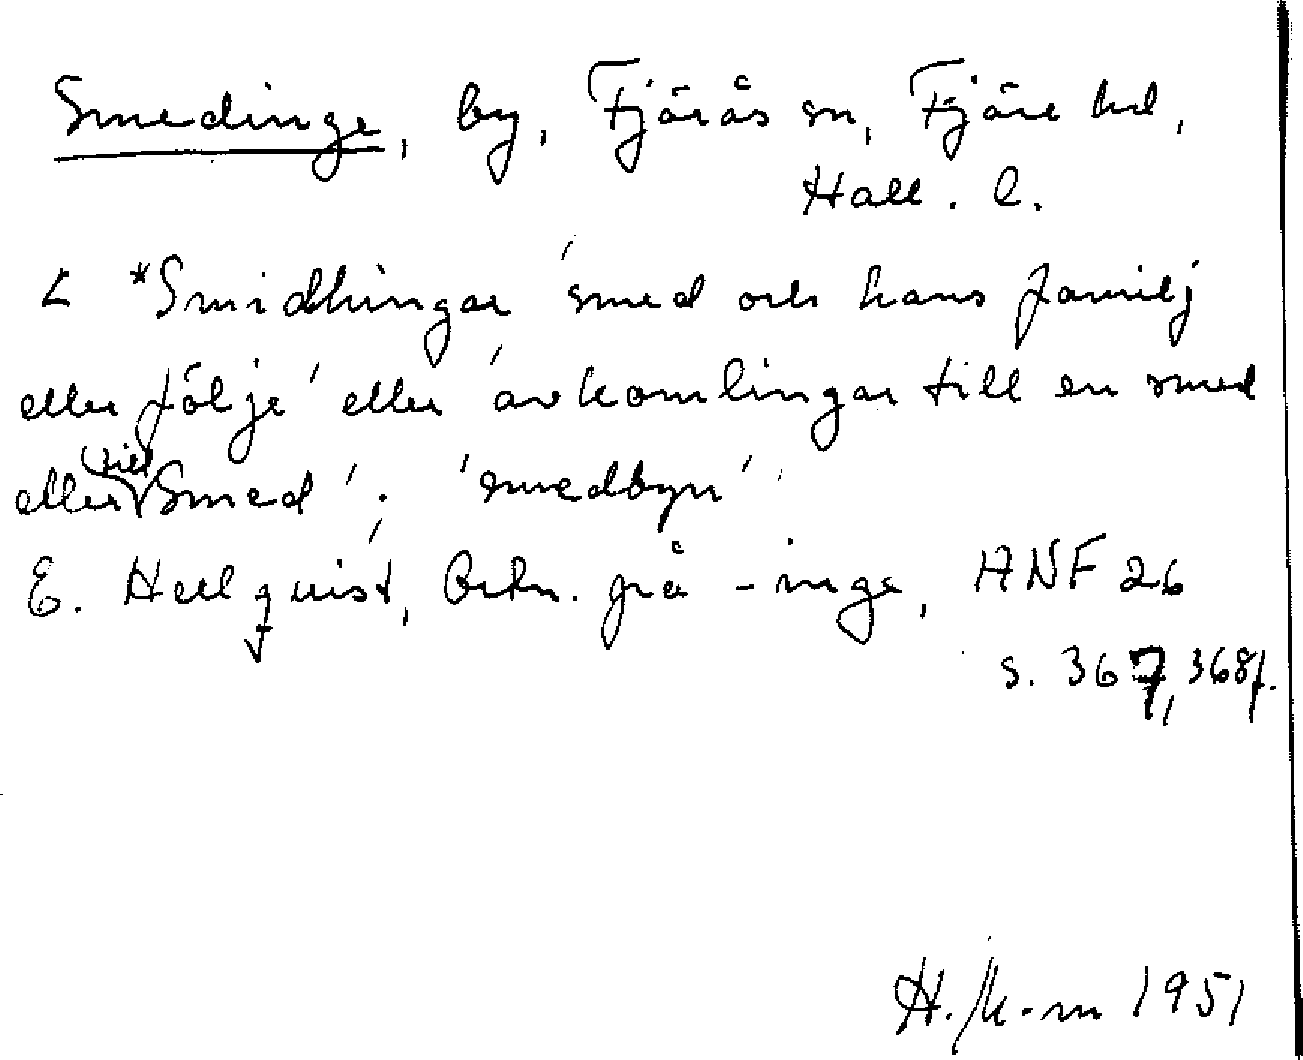 Smedinge, by, Fjärås sn, Fjäre hd,
Hall. l.
< *Smidhingar 'smed och hans familj
eller följe' eller 'avkomlingar till en smed
eller till Smed'; 'smedbyn'
E. Hellquist, Ortn. på -inge, ANF 26
s. 367, 368f.
1951